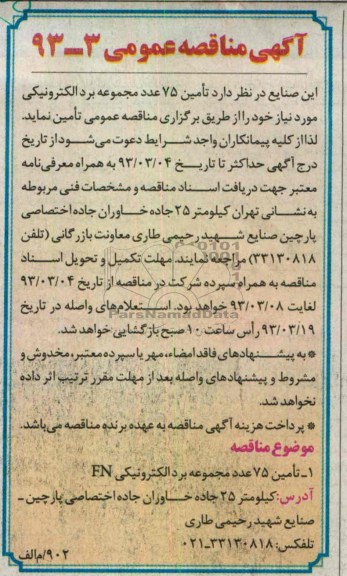 آگهی مناقصه عمومی ۳ــ۹۳
این صنایع در نظر دارد تأمین ۷۵ عدد مجموعه برد الکترونیکی
مورد نیاز خود را از طریق برگزاری مناقصه عمومی تأمین نماید.
لذا از کلیه پیمانکاران واجد شرایط دعوت می‌شود از تاریخ
درج آگهی حداکثر تا تاریخ ۹۳/۰۳/۰۴ به همراه معرفی‌نامه
معتبر جهت دریافت اسناد مناقصه و مشخصات فنی مربوطه
به نشانی تهران کیلومتر ۲۵ جاده خاوران جاده اختصاصی
پارچین صنایع شهید رحیمی طاری معاونت بازرگانی (تلفن
۳۳۱۳۰۸۱۸) مراجعه نمایند. مهلت تکمیل و تحویل اسناد
مناقصه به همراه سپرده شرکت در مناقصه از تاریخ ۹۳/۰۳/۰۴
لغایت ۹۳/۰۳/۰۸ خواهد بود. استعلام‌های واصله در تاریخ
۹۳/۰۳/۱۹ رأس ساعت ۱۰ صبح بازگشایی خواهد شد.
* به پیشنهادهای فاقد امضاء، مهر یا سپرده معتبر، مخدوش و
مشروط و پیشنهادهای واصله بعد از مهلت مقرر ترتیب اثر داده
نخواهد شد.
* پرداخت هزینه آگهی مناقصه به عهده برنده مناقصه می‌باشد.
موضوع مناقصه
۱ـ تأمین ۷۵ عدد مجموعه برد الکترونیکی FN
آدرس: کیلومتر ۲۵ جاده خاوران جاده اختصاصی پارچین ـ
صنایع شهید رحیمی طاری
تلفکس: ۳۳۱۳۰۸۱۸ـ۰۲۱
۹۰۲/م الف
ParsNamadData